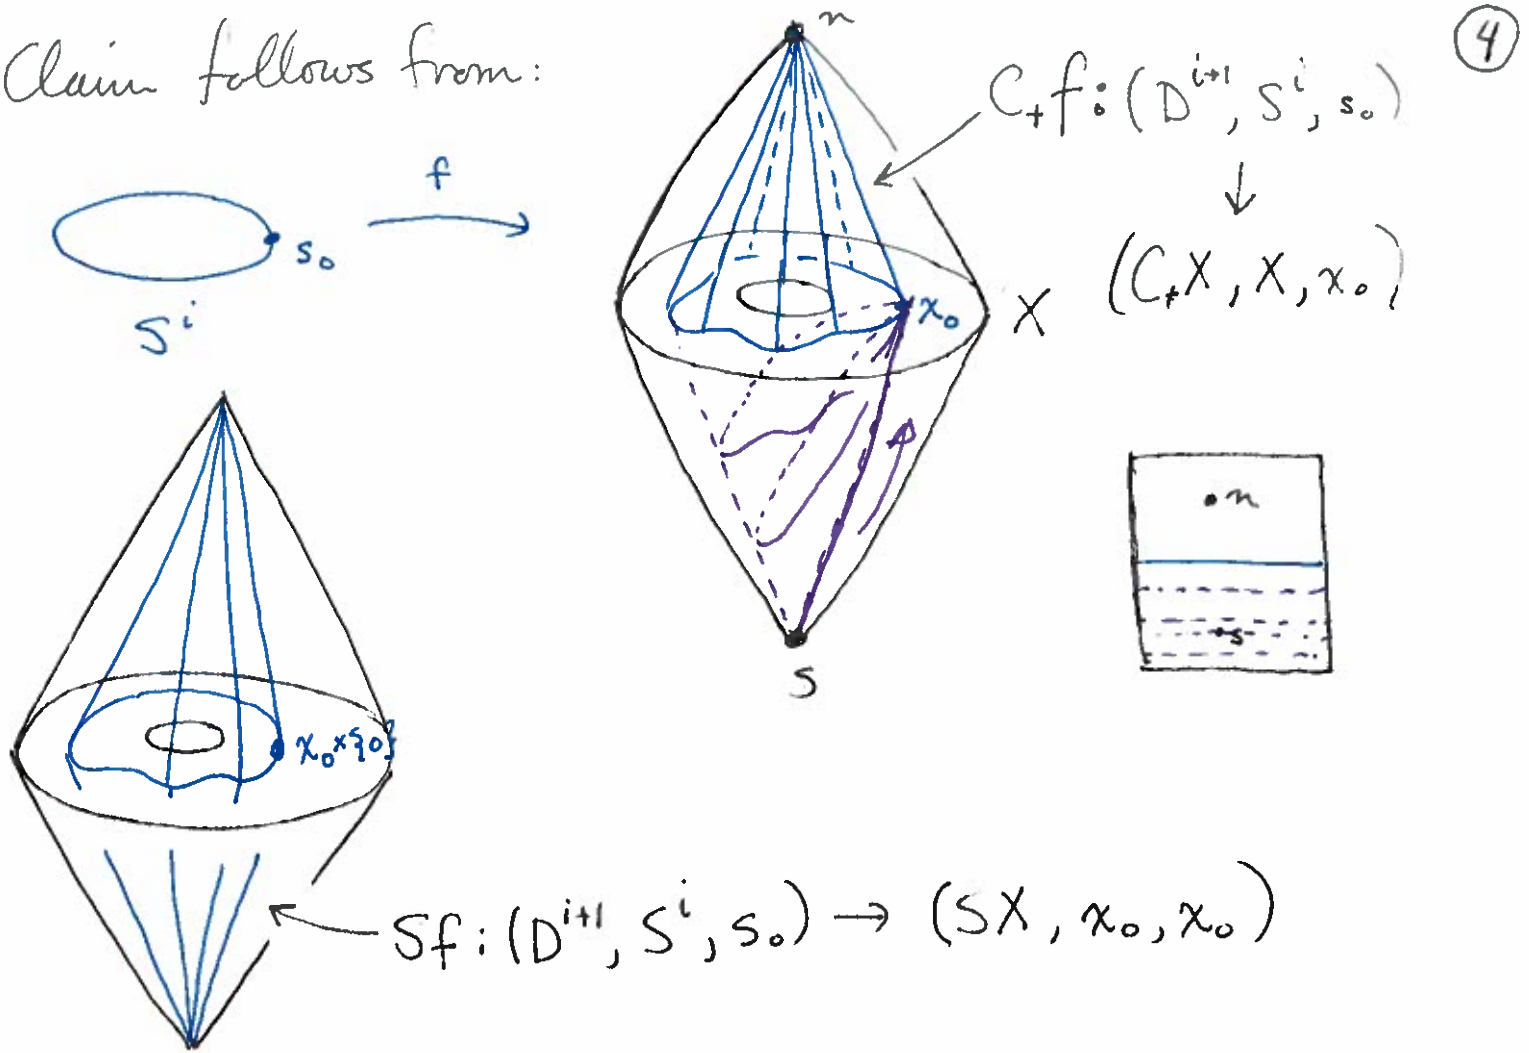 Claim follows from:
n
④
C₊f: (Dⁱ⁺¹, Sⁱ, s₀)
↓
(C₊X, X, x₀)
f
s₀
Sⁱ
x₀
X
n
s
s
x₀×{0}
Sf: (Dⁱ⁺¹, Sⁱ, s₀) → (SX, x₀, x₀)